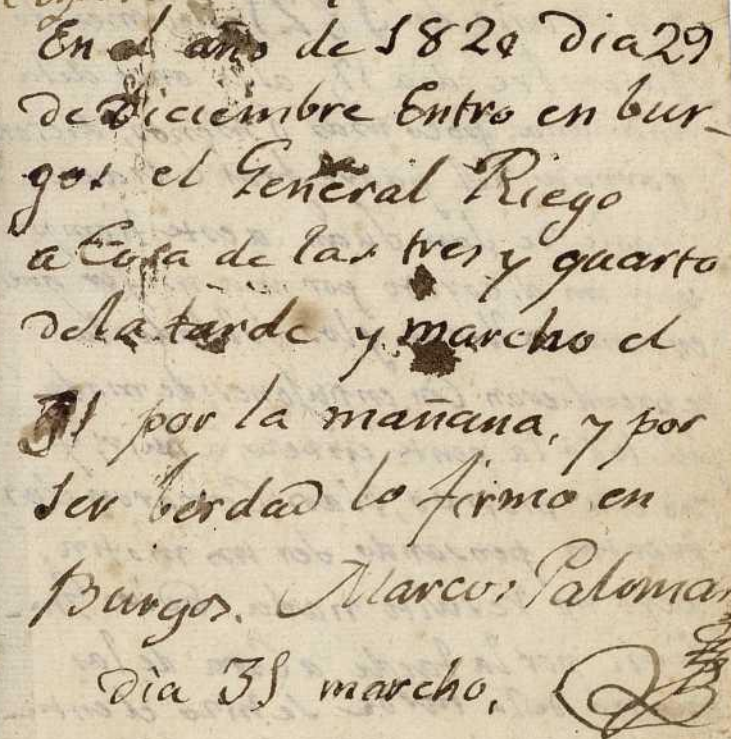 En el año de 1820 Dia 29
de Diciembre Entro en bur-
gos el General Riego
a Cosa de las tres y quarto
de la tarde y marcho el
31 por la mañana, y por
ser berdad lo firmo en
Burgos. Marcos Palomar
dia 31 marcho,